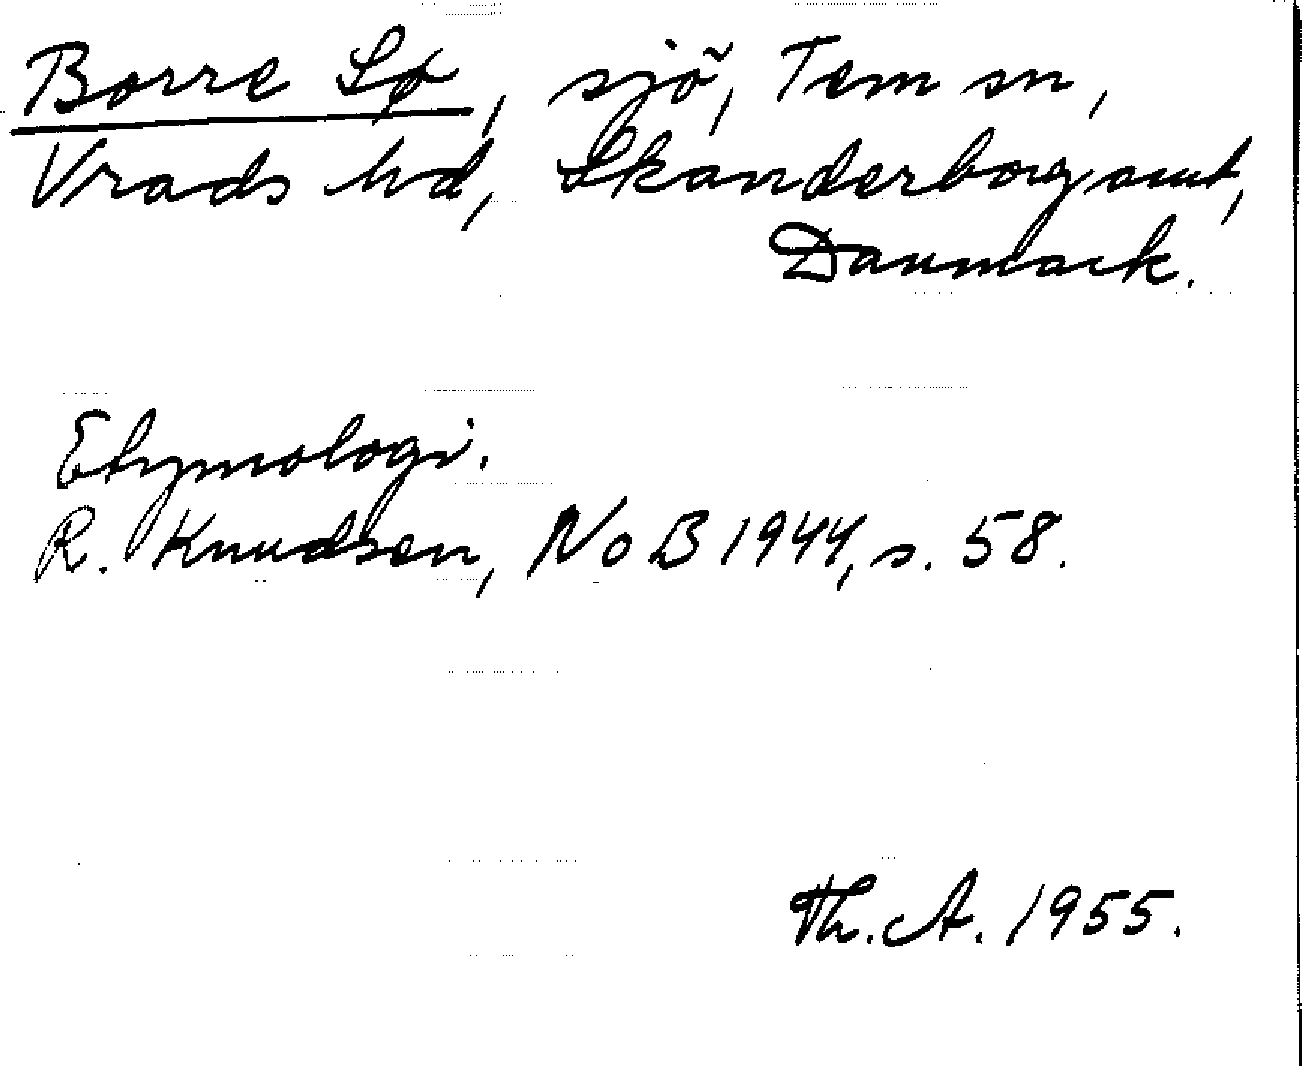 Borre Sø, sjö, Tem sn,
Vrads hd, Skanderborg amt,
Danmark.
Etymologi.
R. Knudsen, NoB 1944, s. 58.
Th. A. 1955.